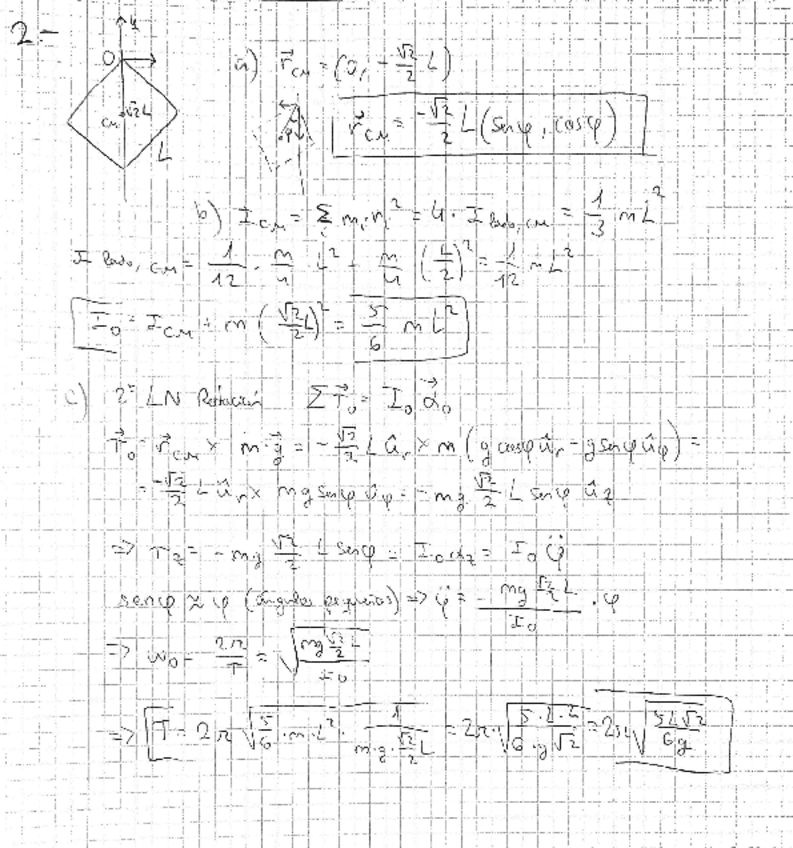 2.-
y
O
CM
√2 L
L
a) r⃗_CM = (0, -√2/2 L)
φ
r⃗_CM = -√2/2 L (senφ, cosφ)
b) I_CM = Σ m_i r_i² = 4 · I lado, CM = 1/3 mL²
I lado, CM = 1/12 · m/4 L² + m/4 (L/2)² = 1/12 mL²
I_O = I_CM + m (√2/2 L)² = 5/6 mL²
c) 2ª LN Rotación Σ τ⃗_O = I_O α⃗_O
τ⃗_O = r⃗_CM × m·g⃗ = -√2/2 L û_r × m (g cosφ û_r - g senφ û_φ) =
= -√2/2 L û_r × mg senφ û_φ = -mg √2/2 L senφ û_z
=> τ_z = -mg √2/2 L senφ = I_O α_z = I_O φ̈
senφ ≈ φ (ángulos pequeños) => φ̈ = - mg √2/2 L / I_O · φ
=> ω_0 = 2π/T = √(mg √2/2 L / I_O)
=> T = 2π √(5/6 · m · L² · 1/(m·g·√2/2 L)) = 2π · √(5·L·2/(6·g·√2)) = 2π √(5L√2/6g)